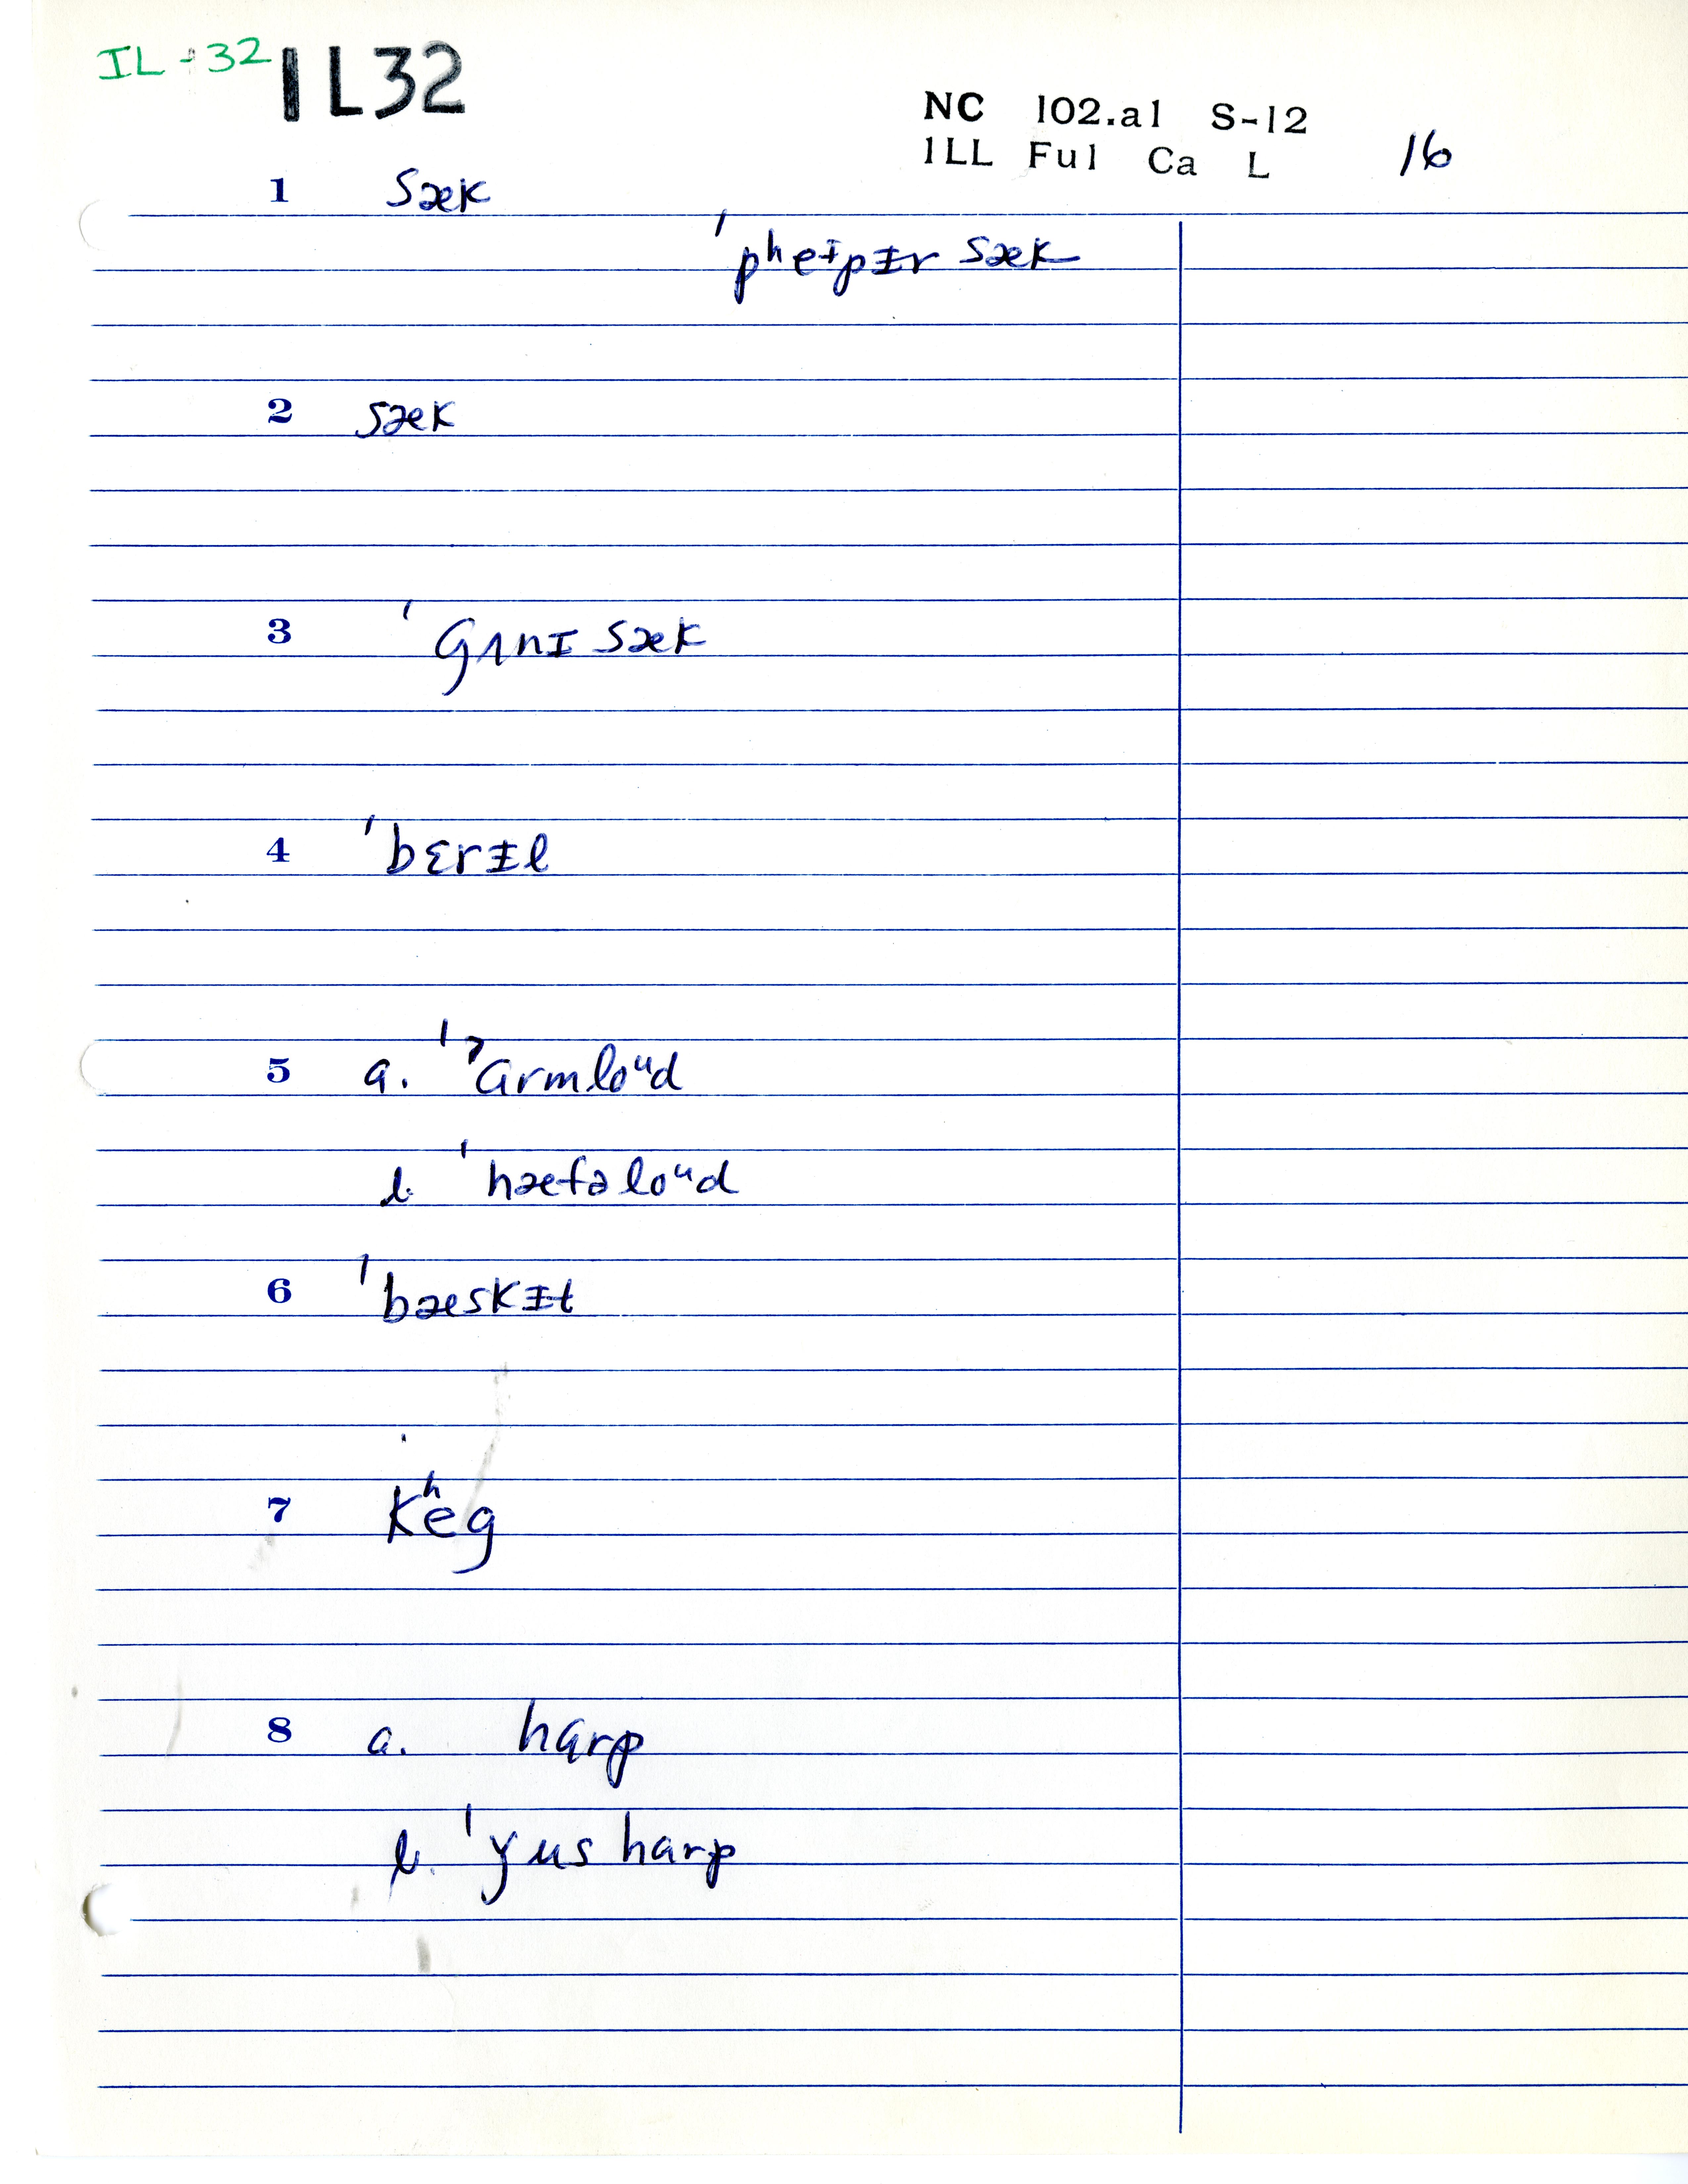 IL-32 IL32
NC 102.a1 S-12
ILL Ful Ca L 16
1 sæk
ˈpʰeᵻpᵻr sæk
2 sæk
3 ˈgʌnɪ sæk
4 ˈbɛrᵻl
5 a. ˈˀɑrmloᵘd
b. ˈhæfəloᵘd
6 ˈbæskᵻt
7 kʰeg
8 a. hɑrp
b. ˈȷ̌us hɑrp